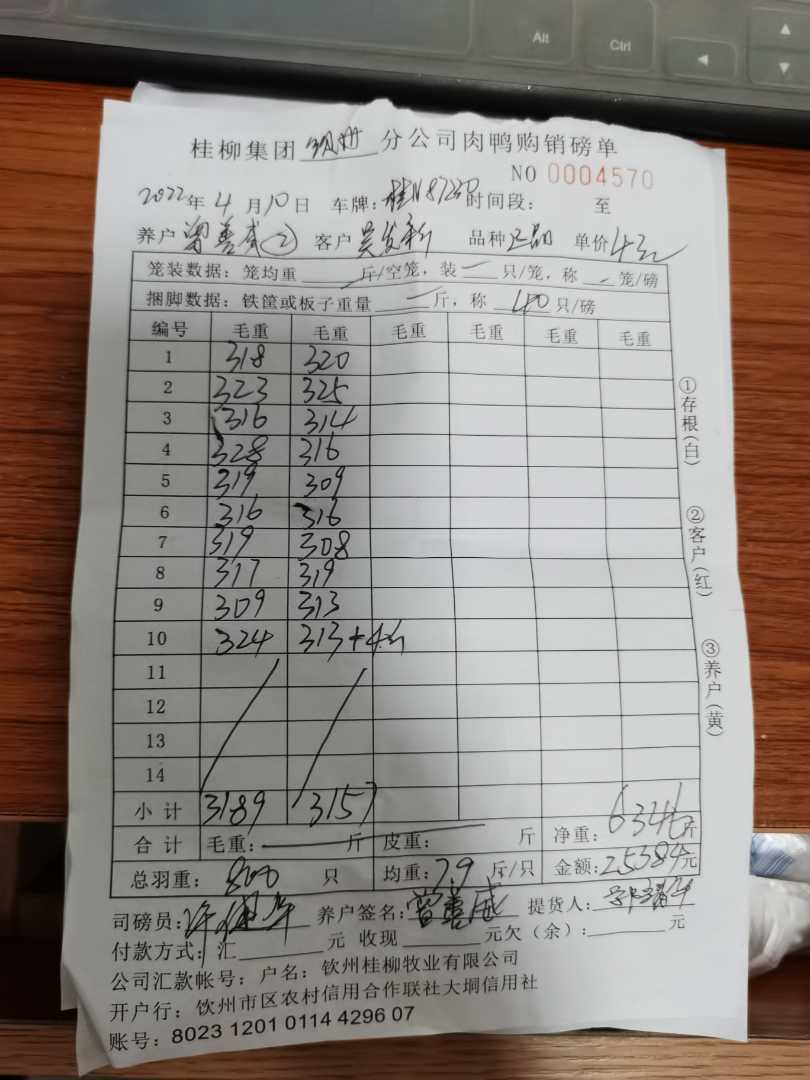 Alt
Ctrl
桂柳集团 分公司肉鸭购销磅单
NO 0004570
2022年4月10日 车牌: 时间段: 至
养户 曾善威② 客户 吴发新 品种 正品 单价 4元
笼装数据: 笼均重 — 斤/空笼, 装 — 只/笼, 称 — 笼/磅
捆脚数据: 铁筐或板子重量 — 斤, 称 40 只/磅
编号 毛重 毛重 毛重 毛重 毛重 毛重
1 318 320
2 323 325
3 316 314
4 328 316
5 319 309
6 316 316
7 319 308
8 317 319
9 309 313
10 324 313+4斤
11
12
13
14
小计 3189 3157
合计 毛重: — 斤 皮重: — 斤 净重: 6346斤
总羽重: 800 只 均重: 7.9 斤/只 金额: 25384元
司磅员: 养户签名: 曾善威 提货人:
付款方式: 汇 元 收现 元欠(余): 元
公司汇款帐号: 户名: 钦州桂柳牧业有限公司
开户行: 钦州市区农村信用合作联社大垌信用社
账号: 8023 1201 0114 4296 07
①存根(白)
②客户(红)
③养户(黄)